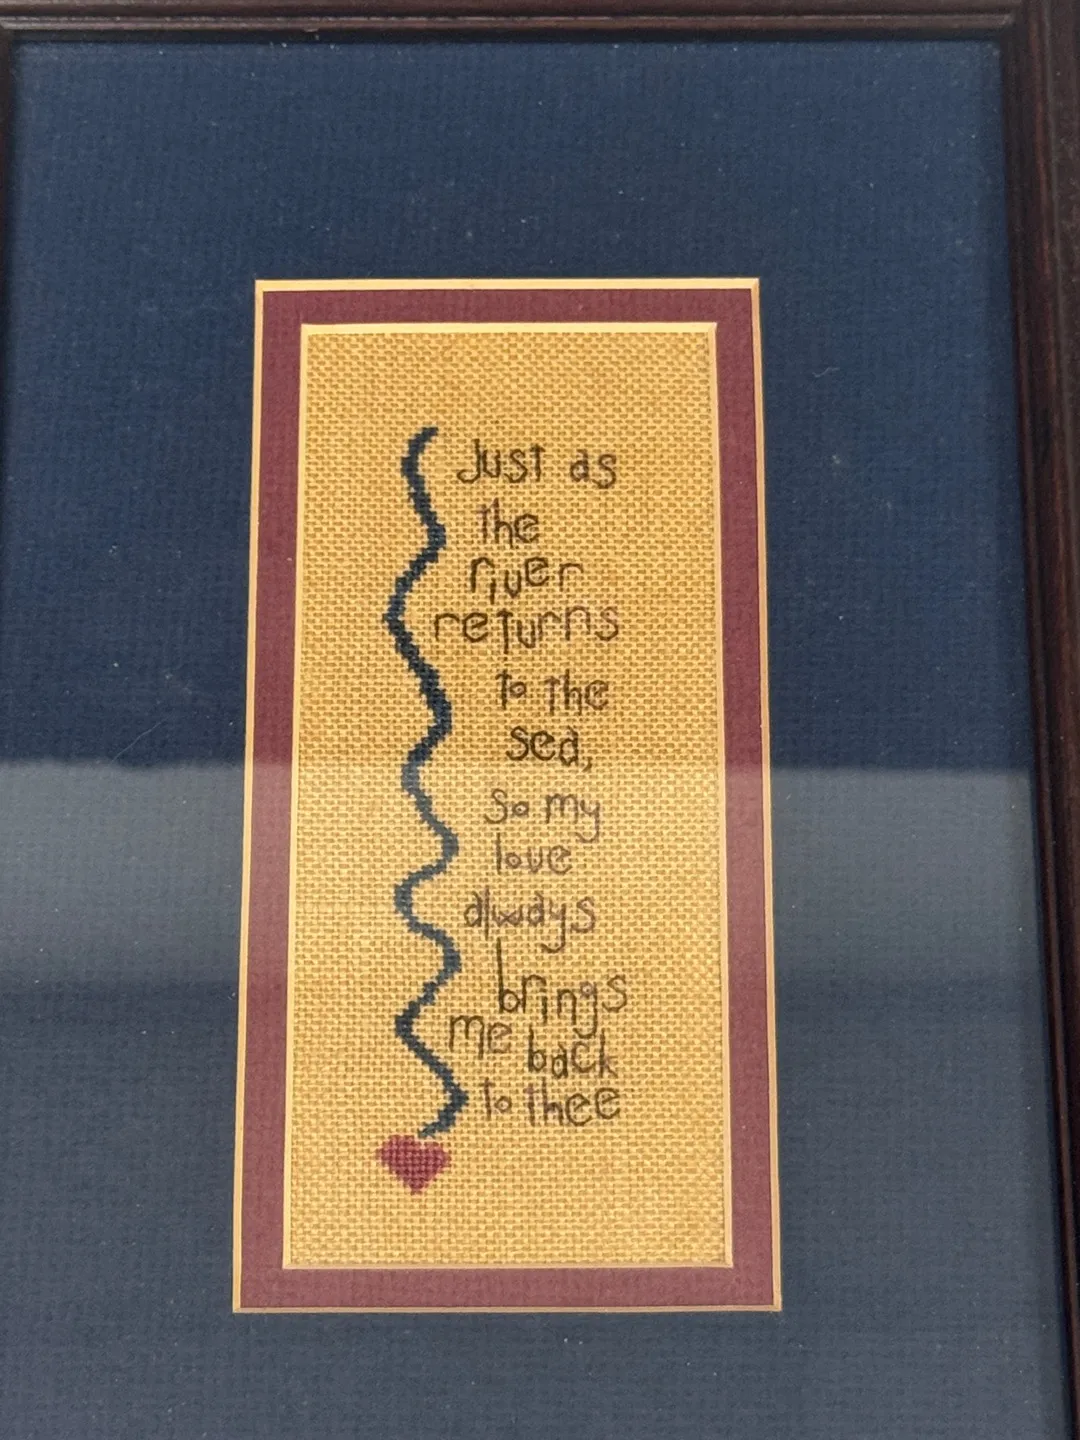 Just as
the
river
returns
to the
sea,
so my
love
always
brings
me back
to thee